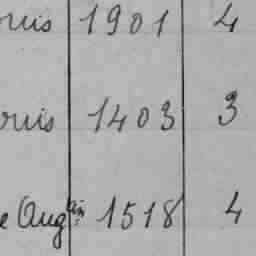 ouis 1901 4
ouis 1403 3
e Aug^in 1518 4